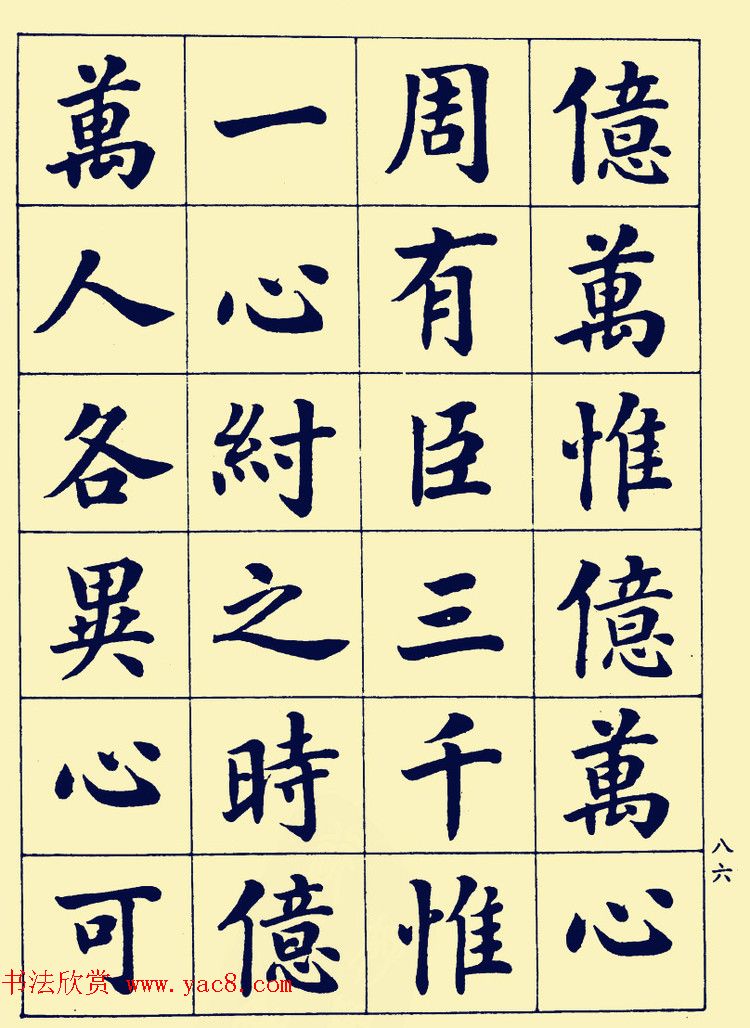 億萬惟億萬心
周有臣三千惟
一心紂之時億
萬人各異心可
八六
书法欣赏 www.yac8.com